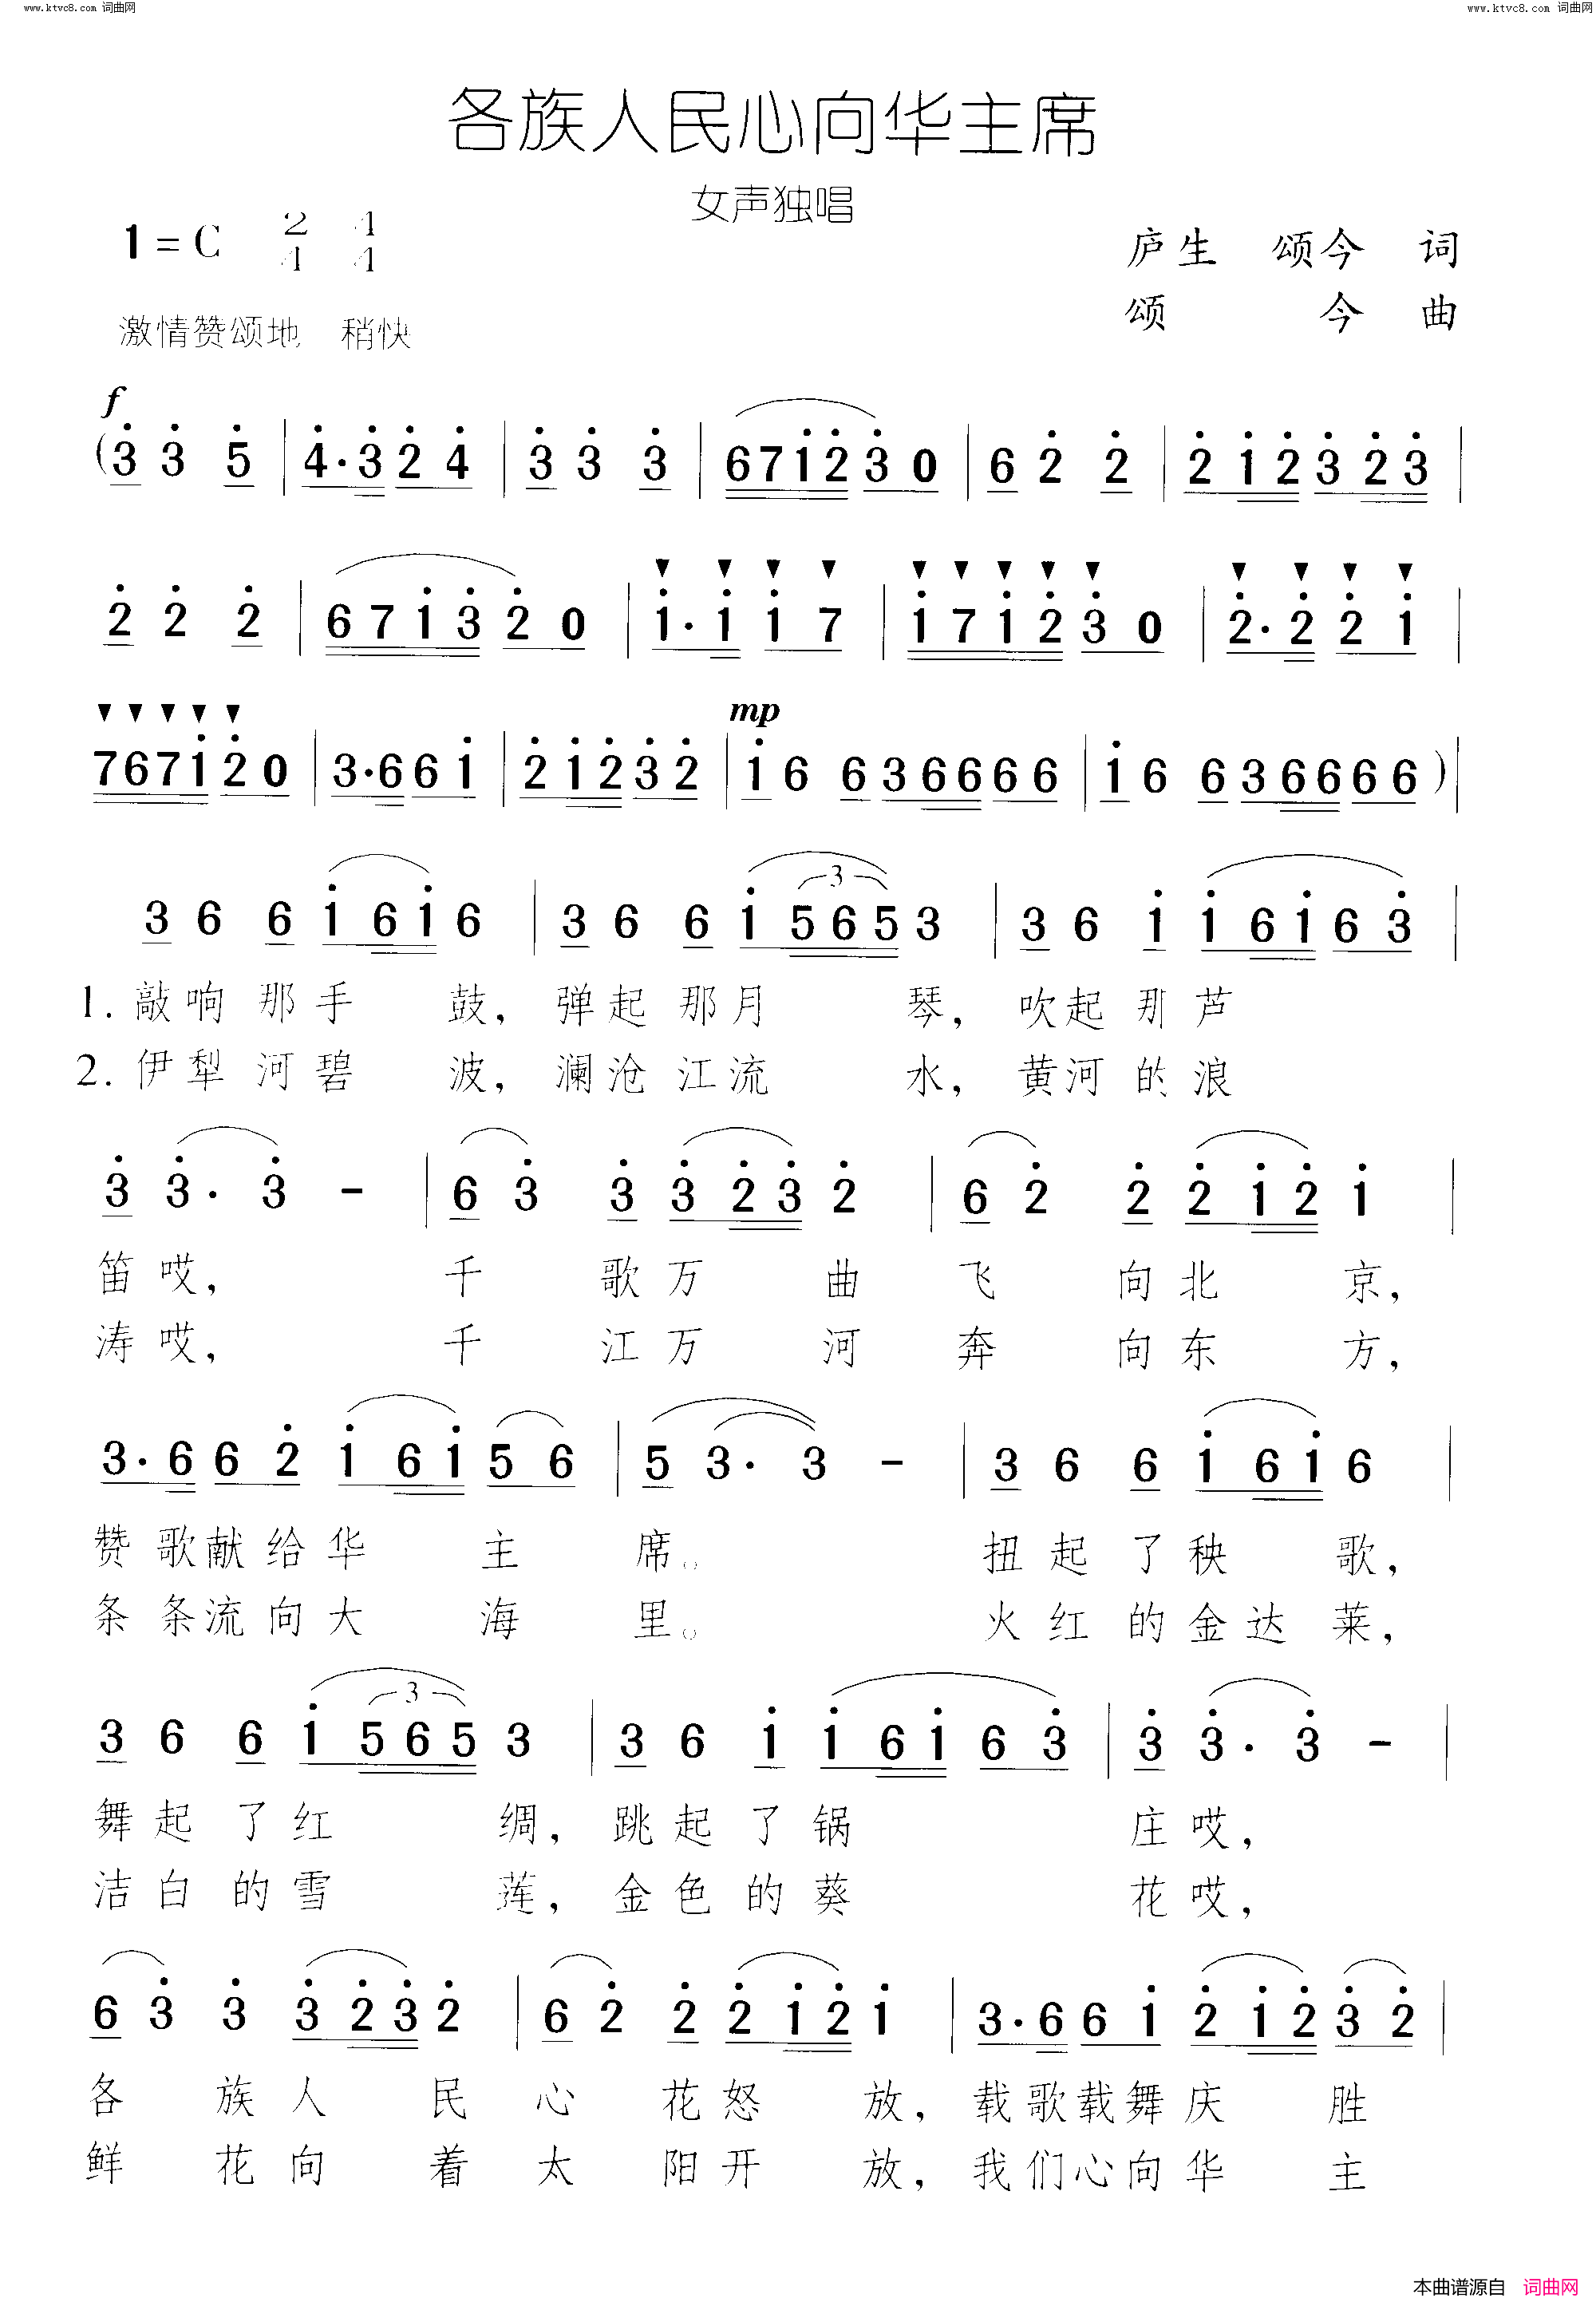 www.ktvc8.com 词曲网
www.ktvc8.com 词曲网
各族人民心向华主席
女声独唱
1=C 2/4 4/4
庐生 颂今 词
颂 今 曲
激情赞颂地 稍快
f
(3 3 5 | 4·3 2 4 | 3 3 3 | 6 7 1 2 3 0 | 6 2 2 | 2 1 2 3 2 3 |
2 2 2 | 6 7 1 3 2 0 | 1·1 1 7 | 1 7 1 2 3 0 | 2·2 2 1 |
mp
7 6 7 1 2 0 | 3·6 6 1 | 2 1 2 3 2 | 1 6 6 3 6 6 6 6 | 1 6 6 3 6 6 6 6 )|
3 6 6 1 6 1 6 | 3 6 6 1 5 6 5 3 | 3 6 1 1 6 1 6 3 |
1. 敲响那手 鼓, 弹起那月 琴, 吹起那芦
2. 伊犁河碧 波, 澜沧江流 水, 黄河的浪
3 3· 3 - | 6 3 3 3 2 3 2 | 6 2 2 2 1 2 1 |
笛哎, 千 歌万 曲 飞 向北 京,
涛哎, 千 江万 河 奔 向东 方,
3·6 6 2 1 6 1 5 6 | 5 3· 3 - | 3 6 6 1 6 1 6 |
赞歌献给华 主 席。 扭起了秧 歌,
条条流向大 海 里。 火红的金达莱,
3 6 6 1 5 6 5 3 | 3 6 1 1 6 1 6 3 | 3 3· 3 - |
舞起了红 绸, 跳起了锅 庄哎,
洁白的雪 莲, 金色的葵 花哎,
6 3 3 3 2 3 2 | 6 2 2 2 1 2 1 | 3·6 6 1 2 1 2 3 2 |
各 族人 民 心 花怒 放, 载歌载舞庆 胜
鲜 花向 着 太 阳开 放, 我们心向华 主
本曲谱源自 词曲网